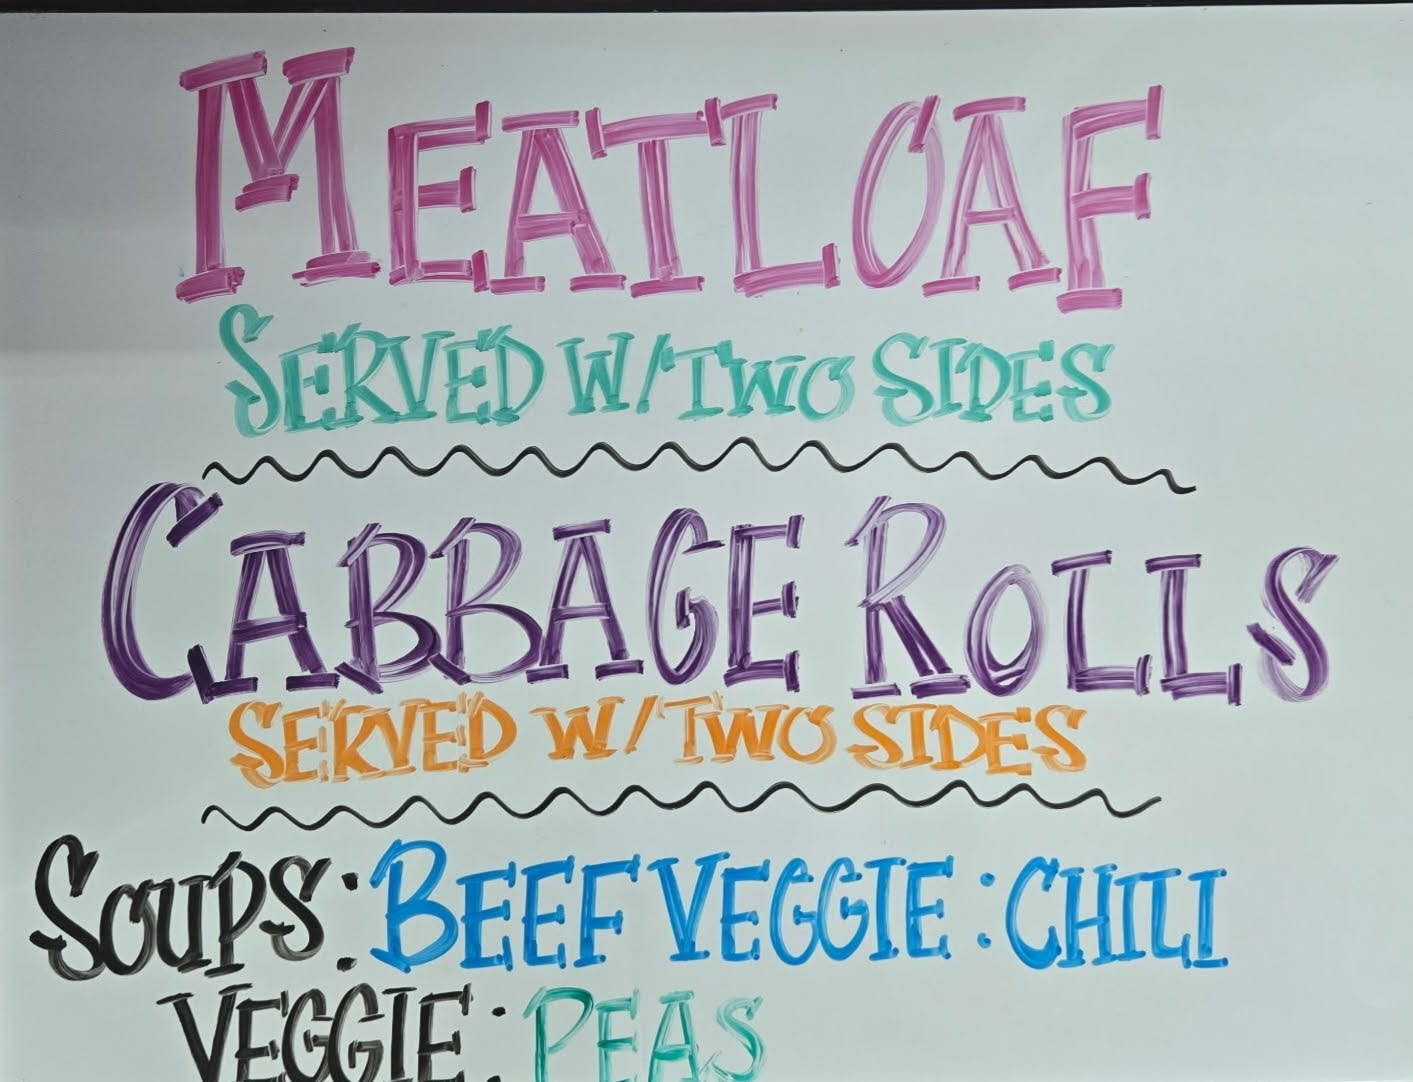 MEATLOAF
SERVED W/TWO SIDES
CABBAGE ROLLS
SERVED W/TWO SIDES
SOUPS: BEEF VEGGIE : CHILI
VEGGIE: PEAS